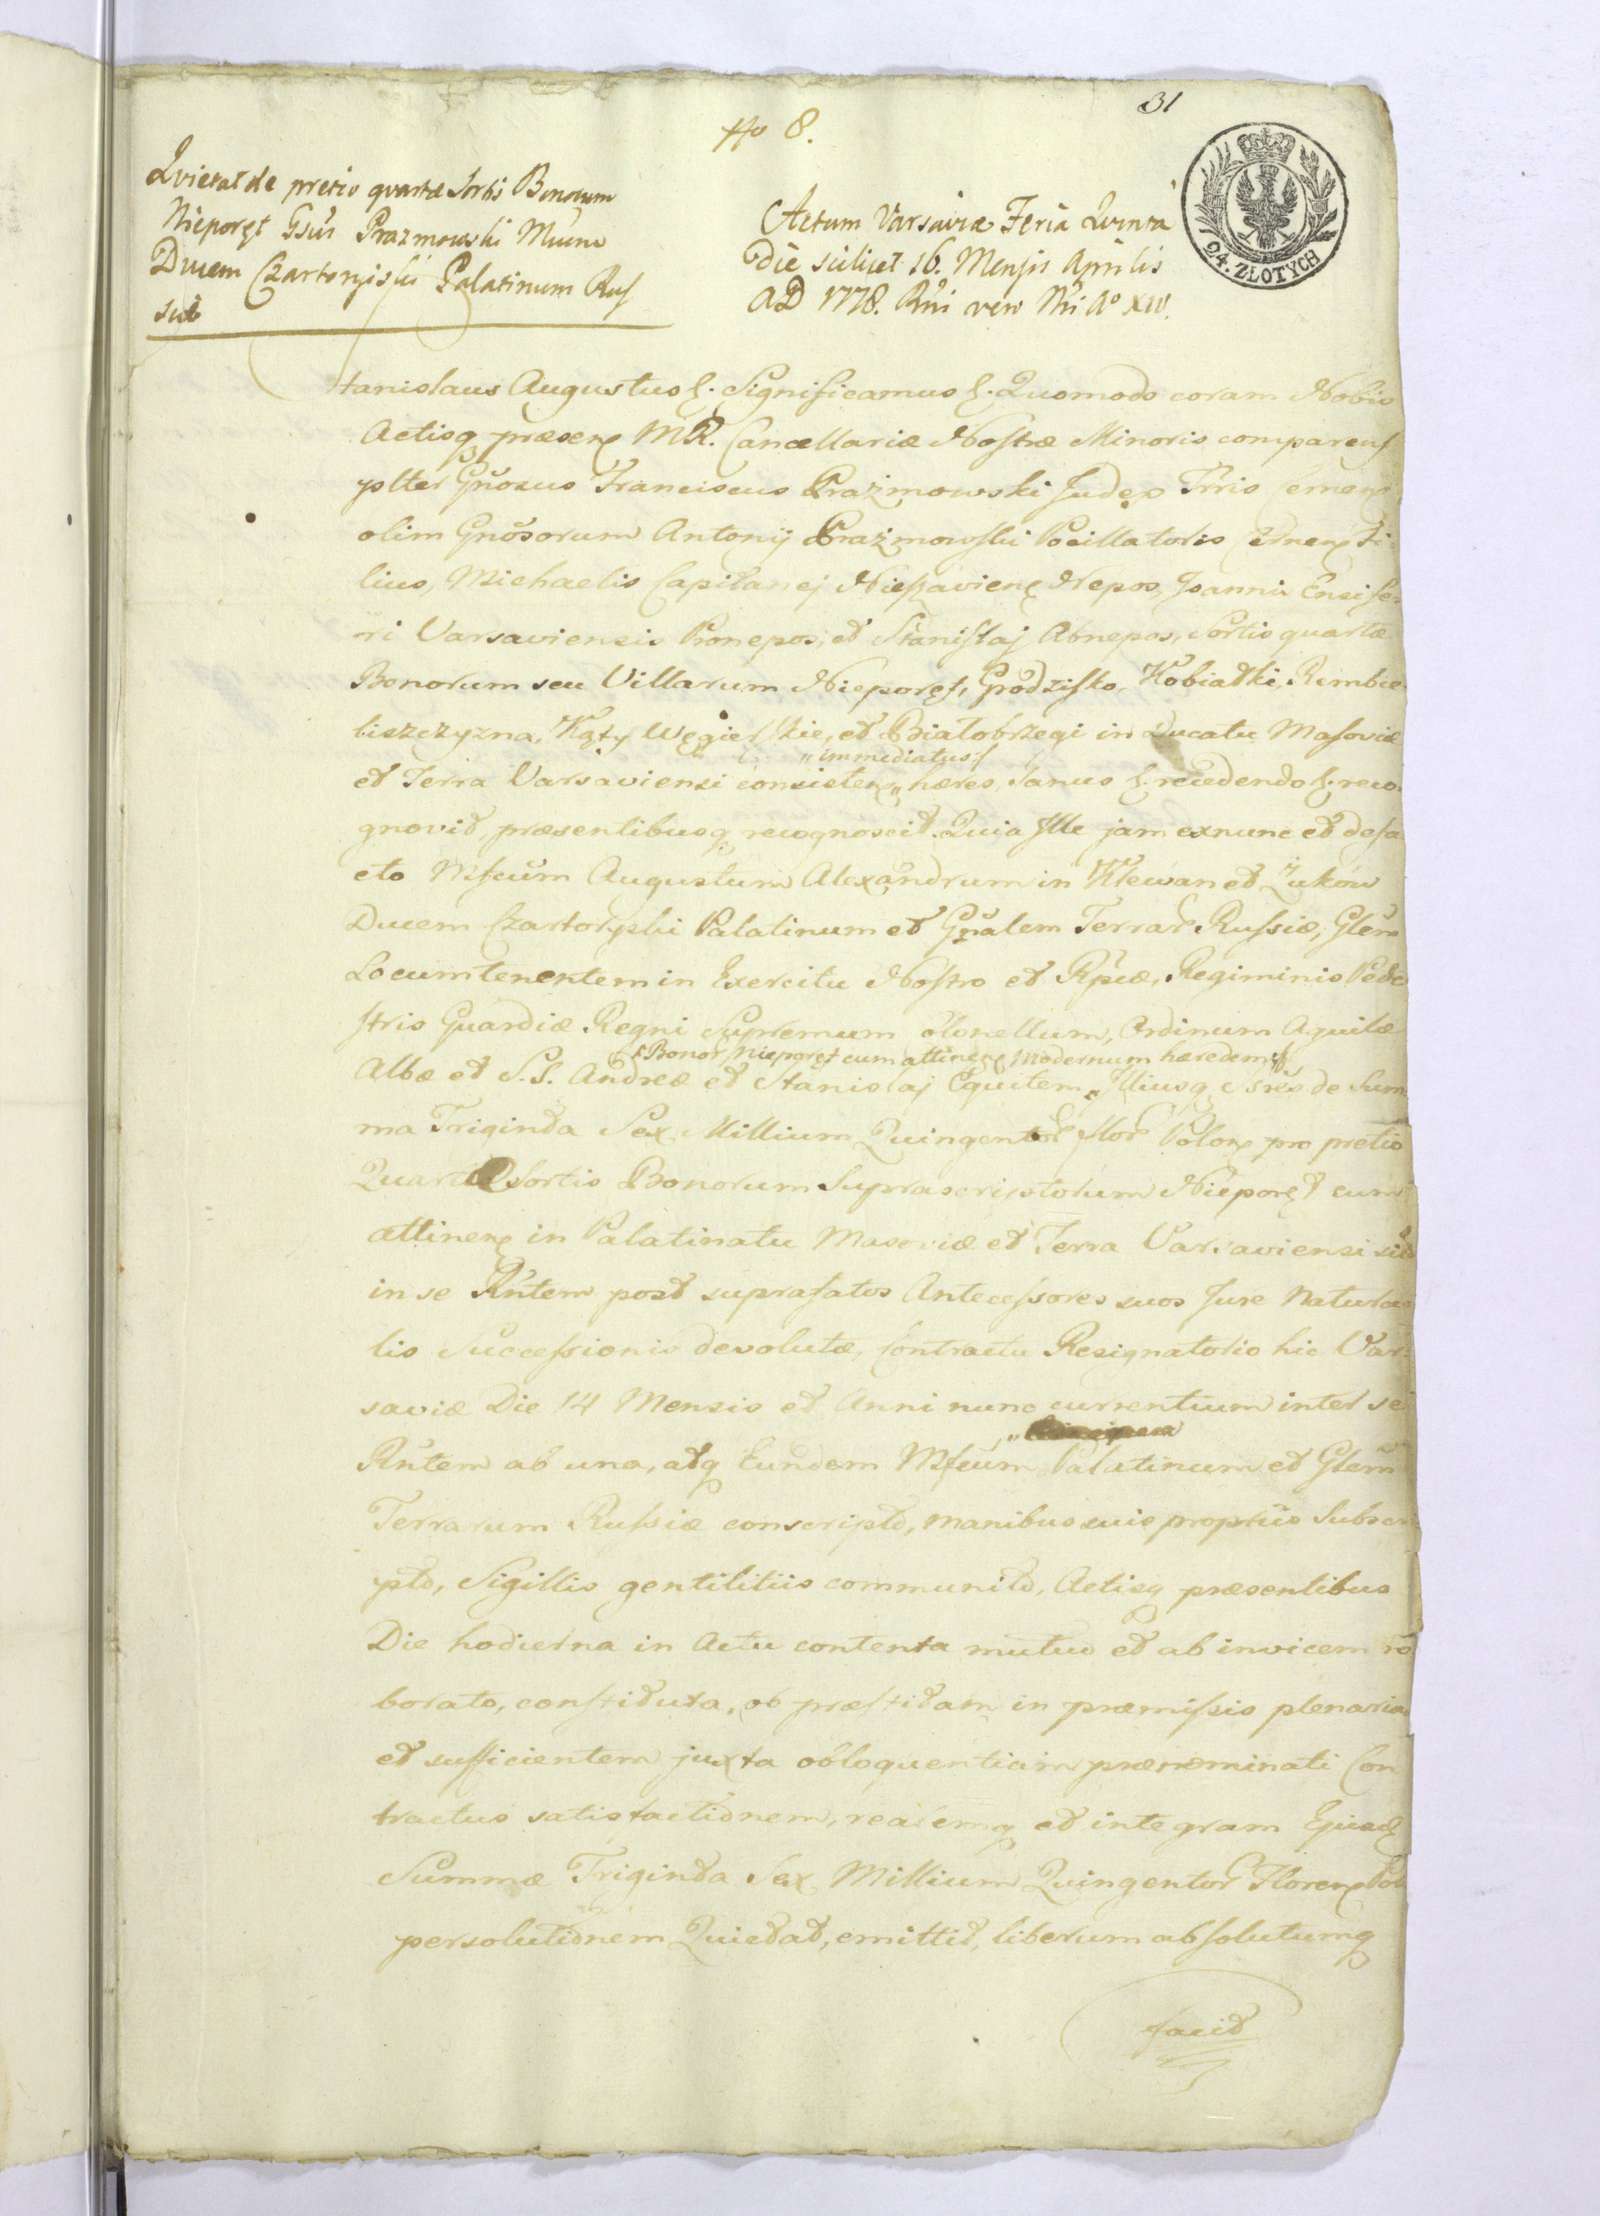 31
No 8.
24. ZŁOTYCH
Qvietat de pretio quartæ Sortis Bonorum
Nieporęt Gsūs Prazmowski Mūum
Ducem Czartoryiski Palatinum Rus
sub
Actum Varsaviæ Feria Quinta
die scilicet 16. Mensis Aprilis
AD 1778. Rni vero Nri Ao XIV.
Stanislaus Augustus &. Significamus &. Quomodo coram Nobis
Actisq præsen MR. Cancellariæ Nostræ Minoris comparens
pslter Gnosus Franciscus Prażmowski Judex Trris Cernen
olim Gnosorum Antonij Prażmowski Pocillatoris Cernen Fi-
lius, Michaelis Capitanej Nieszavien Nepos, Joannis Ensife-
ri Varsaviensis Pronepos, et Stanislaj Abnepos, Sortis quartæ
Bonorum seu Villarum Nieporęt, Grodzisko, Kobiałki, Rembie-
liszczyzna, Kąty Węgierskie, et Białobrzegi in Ducatu Masoviæ
immediatus
et Terra Varsaviensi consisten hæres, Sanus &. recedendo &. reco-
gnovit, præsentibusq recognoscit. Quia Ille jam exnunc et defa
cto Mfcum Augustum Alexandrum in Klewan et Żuków
Ducem Czartoryski Palatinum et Gnalem Terrar Russiæ, Glem
Locumtenentem in Exercitu Nostro et Rpcæ, Regiminis Pede
stris Guardiæ Regni Supremum olonellum, Ordinum Aquilæ
Bonor Nieporęt cum attinen Modernum hæredem
Albæ et S.S. Andreæ et Stanislaj Equitem, Illiusq Ssres de Sum-
ma Triginta Sex Millium Quingentor flor Polon pro pretio
Quartæ Sortis Bonorum Suprascriptorum Nieporęt cum
attinen in Palatinatu Masoviæ et Terra Varsaviensi sit
in se Rntem post suprafatos Antecessores suos Jure Natura
lis Successionis devolutæ, Contractu Resignatorio hic Var-
saviæ Die 14 Mensis et Anni nunc currentium inter se
Rntem ab una, atq Eundem Mfcum Palatinum et Glem
Terrarum Russiæ conscripto, manibus suis proprijs Subscri
pto, Sigillis gentilitiis communito, Actisq præsentibus
Die hodierna in Actu contenta mutuo et ab invicem ro
borato, constituta, ob præstitam in præmissis plenariam
et sufficientem juxta obloquentiam prænominati Con
tractus satisfactionem, realemq et integram Ejusd
Summæ Triginta Sex Millium Quingentor Floren Pol
persolutionem Quietat, emittit, liberum absolutumq
facit